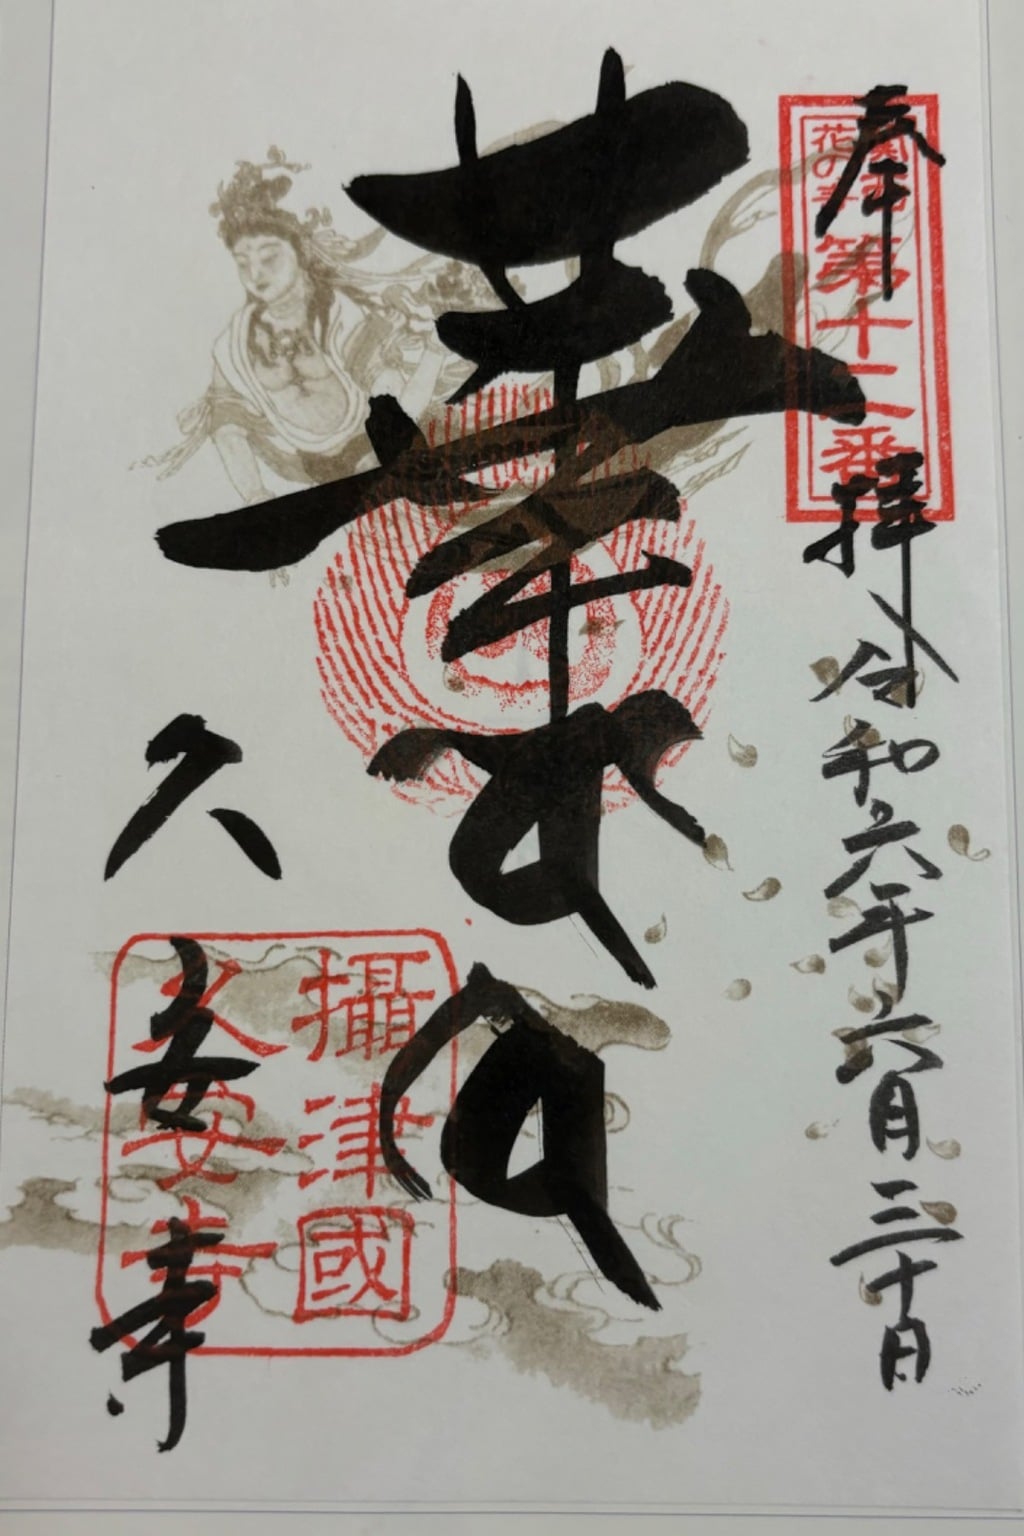 奉拝 令和六年六月三十日
関西
花の寺
第十二番
華
久安寺
攝津國
久安寺